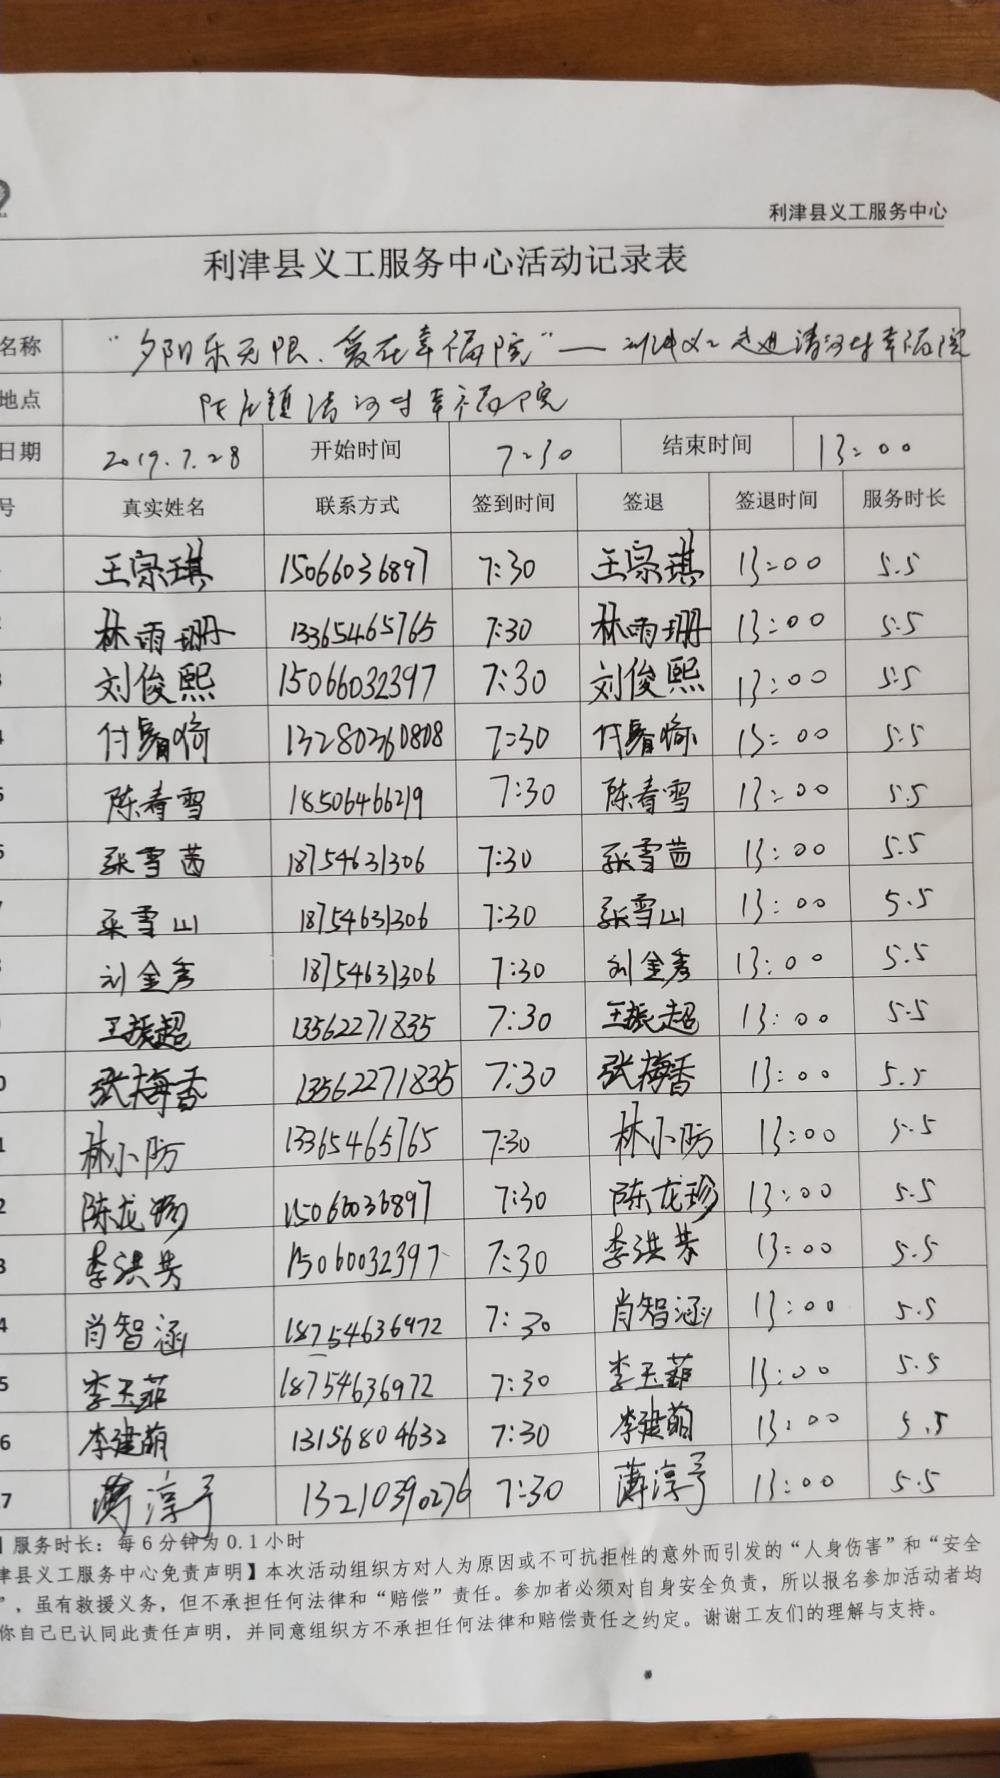 利津县义工服务中心
利津县义工服务中心活动记录表
名称 “夕阳乐无限、爱在幸福院”—利津义工走进清河村幸福院
地点 陈庄镇清河村幸福院
日期 2019.7.28 开始时间 7:30 结束时间 13:00
号 真实姓名 联系方式 签到时间 签退 签退时间 服务时长
王宗琪 15066036897 7:30 王宗琪 13:00 5.5
2 林雨珊 13365465765 7:30 林雨珊 13:00 5.5
3 刘俊熙 15066032397 7:30 刘俊熙 13:00 5.5
4 13280360808 7:30 13:00 5.5
5 陈春雪 18506466219 7:30 陈春雪 13:00 5.5
6 张雪茜 18754631306 7:30 张雪茜 13:00 5.5
7 张雪山 18754631306 7:30 张雪山 13:00 5.5
刘金秀 18754631306 7:30 刘金秀 13:00 5.5
王振超 13562271835 7:30 王振超 13:00 5.5
0 张梅香 13562271835 7:30 张梅香 13:00 5.5
1 林小防 13365465765 7:30 林小防 13:00 5.5
2 陈龙珍 15066036897 7:30 陈龙珍 13:00 5.5
3 李洪芳 15060032397 7:30 李洪芳 13:00 5.5
4 肖智涵 18754636972 7:30 肖智涵 13:00 5.5
5 李玉菲 18754636972 7:30 李玉菲 13:00 5.5
6 李建萌 13156804632 7:30 李建萌 13:00 5.5
7 薄淳予 13210390276 7:30 薄淳予 13:00 5.5
服务时长：每6分钟为0.1小时
津县义工服务中心免责声明】本次活动组织方对人为原因或不可抗拒性的意外而引发的“人身伤害”和“安全
”，虽有救援义务，但不承担任何法律和“赔偿”责任。参加者必须对自身安全负责，所以报名参加活动者均
你自己已认同此责任声明，并同意组织方不承担任何法律和赔偿责任之约定。谢谢工友们的理解与支持。